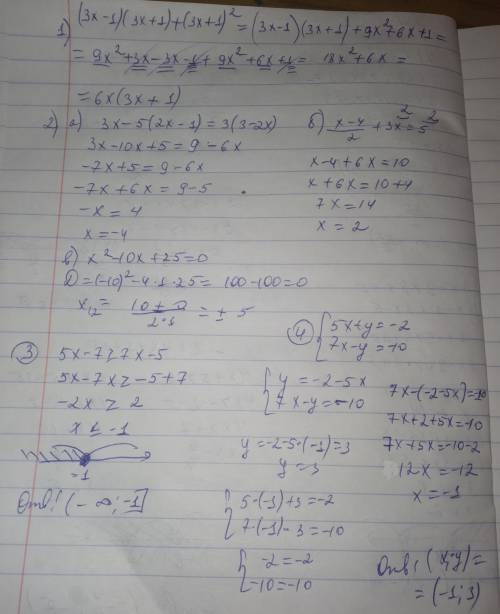 1) (3x-1)(3x+1)+(3x+1)² = (3x-1)(3x+1)+9x²+6x+1=
= 9x²+3x-3x-1+9x²+6x+1= 18x²+6x =
=6x(3x+1)
2) a) 3x-5(2x-1)=3(3-2x)
3x-10x+5=9-6x
-7x+5=9-6x
-7x+6x=9-5
-x=4
x=-4
б) x-4/2 + 3x=5
x-4+6x=10
x+6x=10+4
7x=14
x=2
в) x²-10x+25=0
D=(-10)²-4·1·25= 100-100=0
x₁₂= 10±0/2·1 = ±5
3 5x-7≥7x-5
5x-7x≥-5+7
-2x≥2
x≤-1
-1
Отв: (-∞;-1]
4 {5x+y=-2
7x-y=-10
{y=-2-5x
7x-y=-10
7x-(-2-5x)=-10
7x+2+5x=-10
7x+5x=-10-2
12x=-12
x=-1
y=-2-5·(-1)=3
y=3
{5·(-1)+3=-2
7·(-1)-3=-10
{-2=-2
-10=-10
Отв: (x;y)=
=(-1;3)